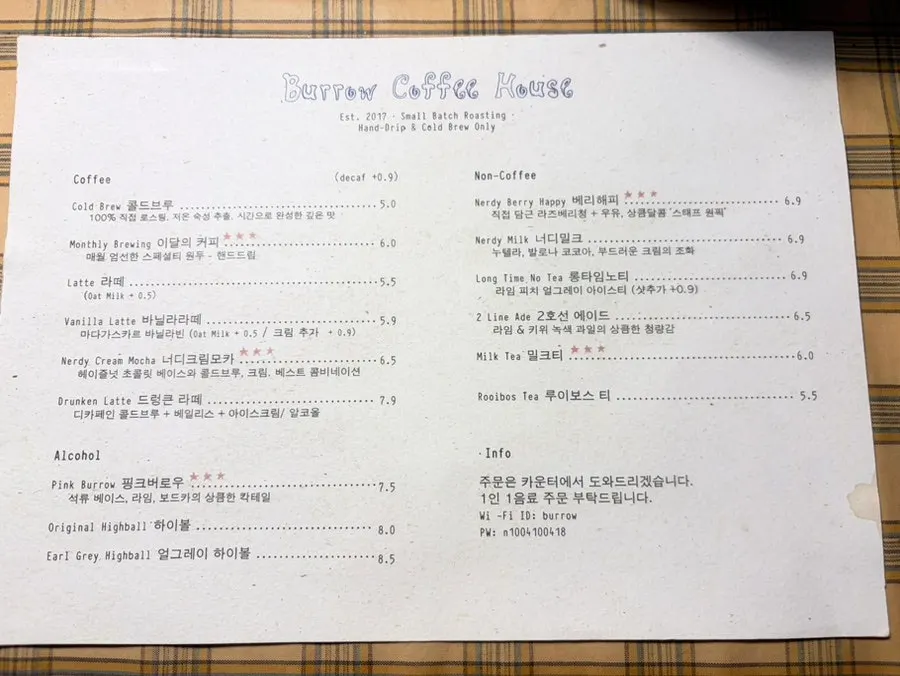 Burrow Coffee House
Est. 2017 · Small Batch Roasting ·
Hand-Drip & Cold Brew Only
Coffee (decaf +0.9)
Cold Brew 콜드브루 5.0
100% 직접 로스팅, 저온 숙성 추출, 시간으로 완성한 깊은 맛
Monthly Brewing 이달의 커피 ★★★ 6.0
매월 엄선한 스페셜티 원두 - 핸드드립
Latte 라떼 5.5
(Oat Milk + 0.5)
Vanilla Latte 바닐라라떼 5.9
마다가스카르 바닐라빈 (Oat Milk + 0.5 / 크림 추가 + 0.9)
Nerdy Cream Mocha 너디크림모카 ★★★ 6.5
헤이즐넛 초콜릿 베이스와 콜드브루, 크림. 베스트 콤비네이션
Drunken Latte 드렁큰 라떼 7.9
디카페인 콜드브루 + 베일리스 + 아이스크림/ 알코올
Alcohol
Pink Burrow 핑크버로우 ★★★ 7.5
석류 베이스, 라임, 보드카의 상큼한 칵테일
Original Highball 하이볼 8.0
Earl Grey Highball 얼그레이 하이볼 8.5
Non-Coffee
Nerdy Berry Happy 베리해피 ★★★ 6.9
직접 담근 라즈베리청 + 우유, 상큼달콤 '스태프 원픽'
Nerdy Milk 너디밀크 6.9
누텔라, 발로나 코코아, 부드러운 크림의 조화
Long Time No Tea 롱타임노티 6.9
라임 피치 얼그레이 아이스티 (샷추가 +0.9)
2 Line Ade 2호선 에이드 6.5
라임 & 키위 녹색 과일의 상큼한 청량감
Milk Tea 밀크티 ★★★ 6.0
Rooibos Tea 루이보스 티 5.5
·Info
주문은 카운터에서 도와드리겠습니다.
1인 1음료 주문 부탁드립니다.
Wi -Fi ID: burrow
PW: n1004100418